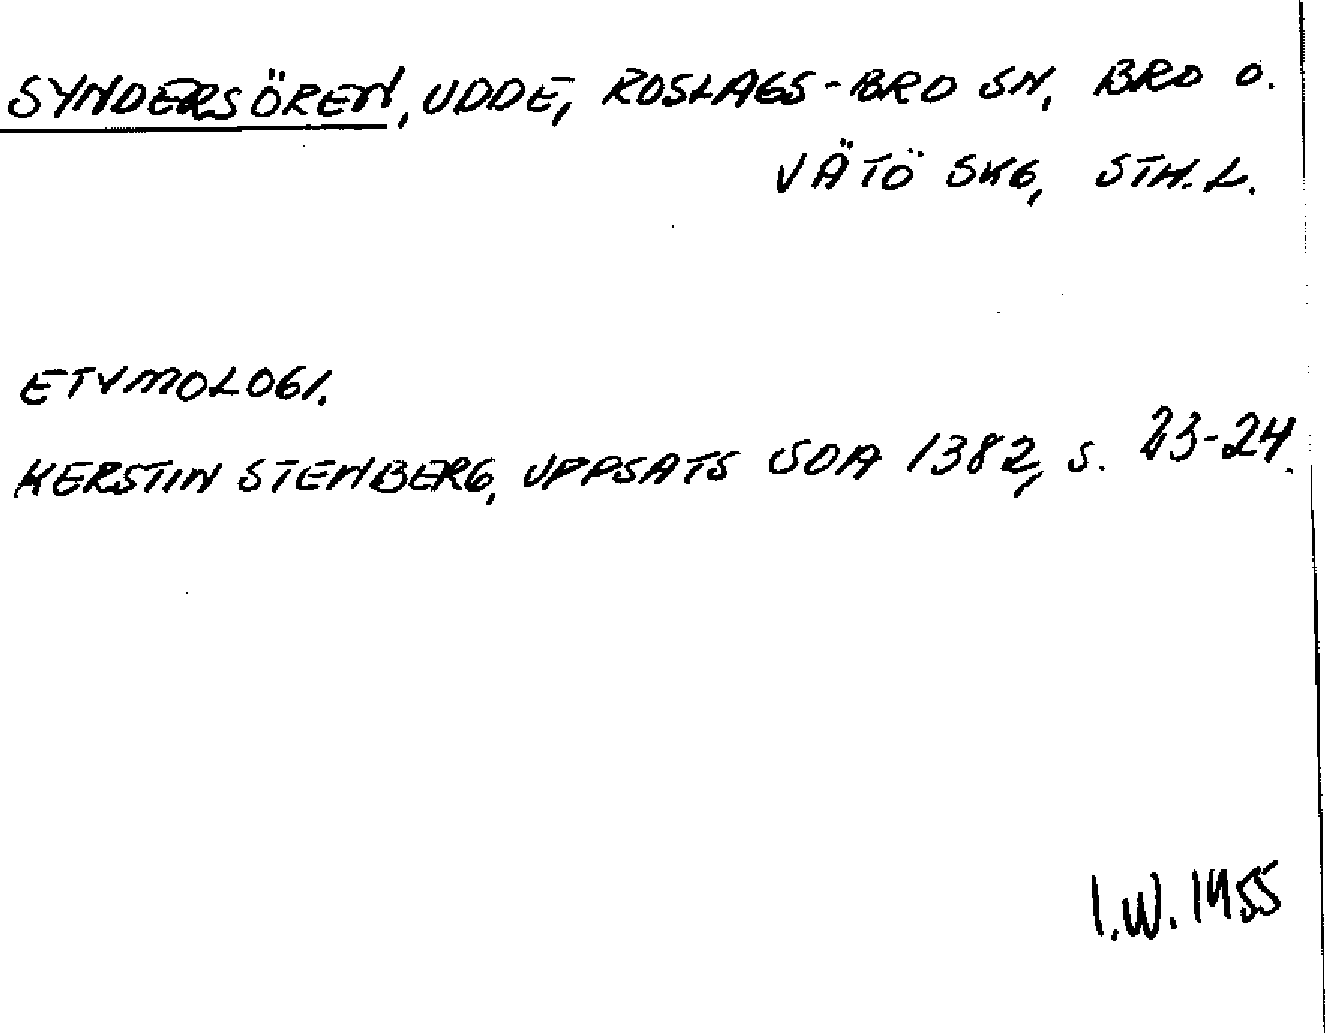 SYNDERSÖREN, UDDE, ROSLAGS-BRO SN, BRO O.
VÄTÖ SKG, STH. L.
ETYMOLOGI.
KERSTIN STENBERG, UPPSATS SOA 1382, S. 23-24.
I.W. 1955